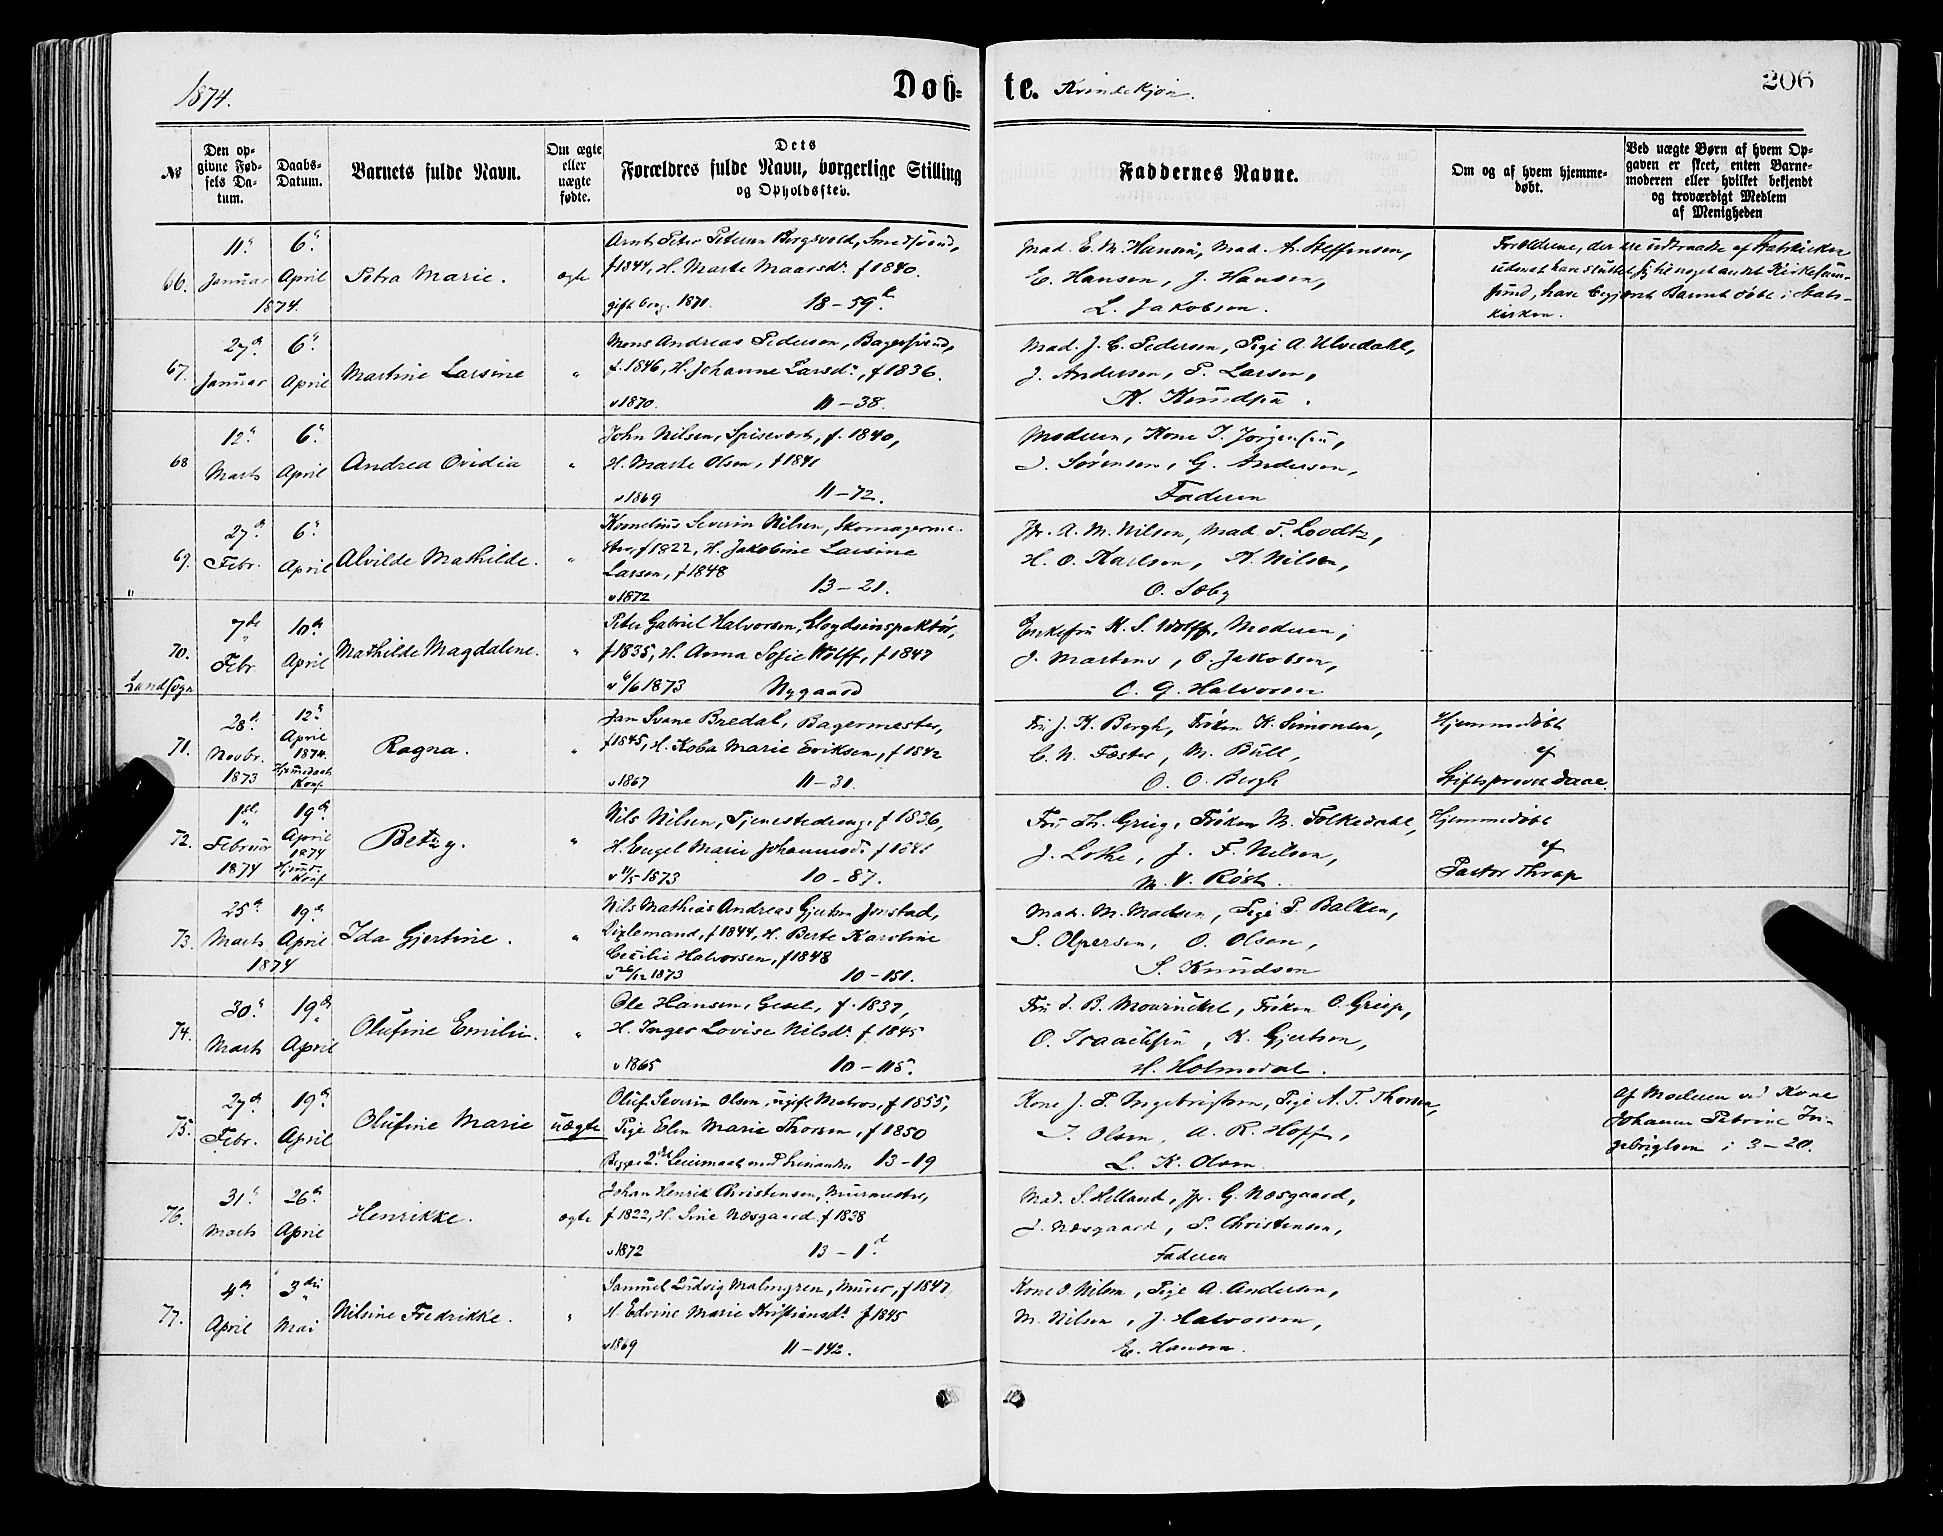 1874.
Døb-
te. Kvindekjøn.
206
№
Den op-
givne Fød-
sels Da-
tum.
Daabs-
Datum.
Barnets fulde Navn.
Om ægte
eller
uægte
fødte.
Dets
Forældres fulde Navn, borgerlige Stilling
og Opholdssted.
Faddernes Navne.
Om og af hvem hjemme-
døbt.
Ved uægte Børn af hvem Op-
gaven er skeet, enten Barne-
moderen eller hvilket bekjendt
og troværdigt Medlem
af Menigheden
66.
11te
Januar
1874.
6te
April
Petra Marie.
ægte
Arnt Peter Petersen Borgsvold, Smedsvend,
f 1844, H. Marte Maarsdr. f 1840.
gift borg. 1871. 18-59 b
Mad. E. M. Hansen, Mad. A. Steffensen,
E. Hansen, J. Hansen,
L. Jakobsen.
Forældrene, der ere udtraadte af Statskirken
uden at have sluttet sig til noget andet Kirkesam-
fund, have begjært Barnet døbt i Stats-
kirken.
67.
27de
Januar
6te
April
Martine Larsine
"
Mons Andreas Pedersen, Bagersvend,
f. 1846, H. Johanne Larsdr., f 1836.
v 1870. 11-38.
Mad. J. C. Pedersen, Pige A. Ulvedahl,
J. Andersen, P. Larsen,
K. Knudsen.
68
12te
Marts
6te
April
Andrea Ovidia
"
John Nilsen, Spisevert, f. 1840,
H. Marte Olsen, f 1841
v 1869 11-72.
Moderen, Kone I. Jørgensen,
I. Sørensen, G. Andersen,
Faderen
69.
27de
Febr.
6te
April
Alvilde Mathilde.
"
Kornelius Severin Nilsen, Skomagerme-
ster, f 1822, H. Jakobine Larsine
Larsen, f 1848
v 1872 13-21.
Jfr. A. M. Nilsen, Mad. T. Loodtz,
H. O. Karlson, K. Nilsen,
O. Sæby
"
70.
Landsogn
7de
Febr
10de
April
Mathilde Magdalene.
"
Peter Gabriel Halvorsen, Lloydsinspektør,
f 1835, H. Anna Sofie Wolff, f 1847
v 6/6 1873 Nygaard
Enkefru K. S. Wolff, Moderen,
J. Martens, O. Jakobsen,
C. G. Halvorsen
71.
28de
Novbr.
1873
12te
April
1874.
Hjemmedaab
Konf.
Ragna.
"
Jan Svane Bredal, Bagermester,
f 1845, H. Koba Marie Eriksen, f 1842
v 1867 11-31.
Fru J. K. Bergh, Frøken K. Simonsen,
C. N. Fæster, M. Bull,
O. O. Bergh
Hjemmedøbt
af
Stiftsprovst Daae.
72.
1ste
Februar
1874
19de
April
1874
Hjemd.
Konf
Betzy.
"
Nils Nilsen, Tjenestedreng, f 1836,
H. Engel Marie Johannesdr. f 1841
v 11/5 1873 10-87.
Fru Th. Grieg, Frøken M. Folkedahl,
J. Lothe, J. F. Nilsen,
M. V. Røst.
Hjemmedøbt
af
Pastor Thrap
73.
25de
Marts
1874
19de
April
Ida Gjertine.
"
Nils Mathias Andreas Gjertsen Jonstad,
Liglemand, f 1844, H. Berte Karoline
Cecilie Halvorsen, f 1848
v 26/12 1873 10-151.
Mad. M. Madsen, Pige P. Balken,
S. Olpersen, O. Olsen,
S. Knudsen
74.
30te
Marts
19de
April
Olufine Emilie.
"
Ole Hansen, Gesel, f. 1837,
H. Inger Lovise Nilsdr. f 1845
v 1865 10-115.
Fru I. B. Mowinckel, Frøken O. Grieg,
O. Israelsen, K. Gjertsen,
H. Holmedal.
75.
27de
Febr.
19de
April
Olufine Marie
uægte
Oluf Severin Olsen, ugift Matros, f 1855,
Pige Elen Marie Thorsen, f 1850
Begges 2det Leiermaal med hinanden 13-19
Kone J. P. Ingebrigtsen, Pige A. T. Thorsen,
I. Olsen, A. R. Hoff,
L. K. Olsen
Af Moderen ved Kone
Johanne Petrine In-
gebrigtsen i 3-20.
76.
31te
Marts
26de
April
Henrikke.
ægte
Johan Henrik Christensen, Murmester,
f 1822, H. Sine Næsgaard f 1838
v 1872 13-1 d
Mad. S. Helland, Jfr. G. Næsgaard,
I. Næsgaard, S. Christensen,
Faderen
77.
4de
April
3die
Mai
Nilsine Fredrikke.
"
Samuel Ludvig Malmgren, Murer, f 1847,
H. Edvine Marie Kristiansdr. f 1845
v 1869 11-142.
Kone O. Nilsen, Pige A. Andersen,
M. Nilsen, J. Halvorsen,
E. Hansen.